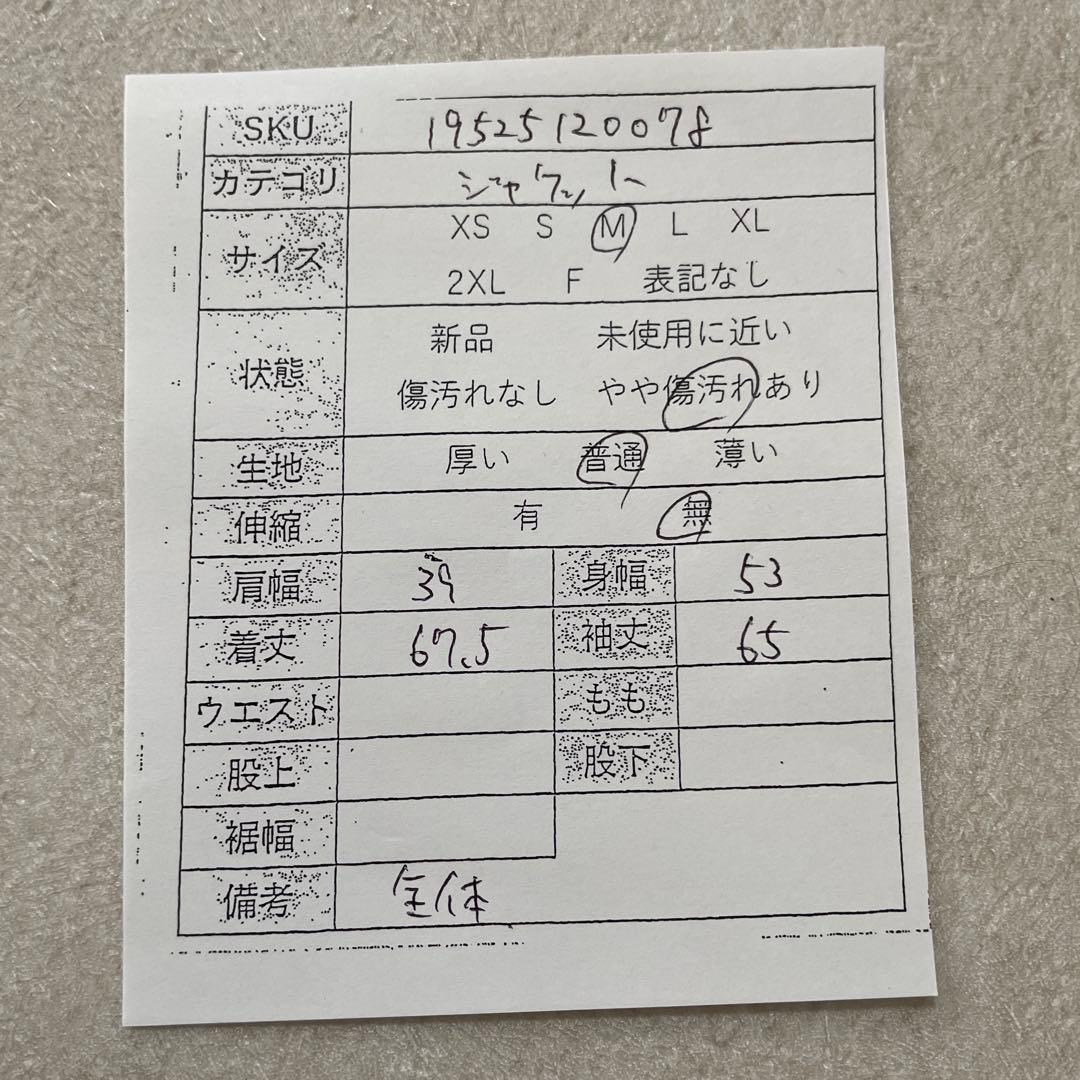 SKU 19525120078
カテゴリ ジャケット
サイズ XS S M L XL
2XL F 表記なし
状態 新品 未使用に近い
傷汚れなし やや傷汚れあり
生地 厚い 普通 薄い
伸縮 有 無
肩幅 39 身幅 53
着丈 67.5 袖丈 65
ウエスト もも
股上 股下
裾幅
備考 全体